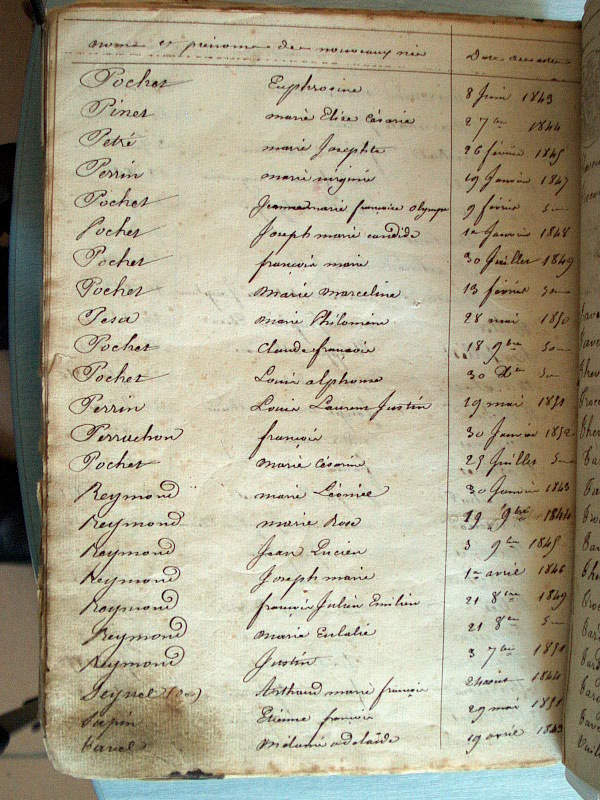 noms et prénoms des nouveaux nés Date des actes
Pochet Euphrosine 8 Juin 1843
Pinet marie Elise Césarie 2 7bre 1844
Petré marie Josephte 26 février 1845
Perrin marie virginie 19 Janvier 1847
Pochet Jeanne marie françoise olympe 9 février
Pochet Joseph marie candide 1er Janvier 1848
Pochet françois marie 30 Juillet 1849
Pochet Marie marceline 13 février
Pesa marie Philomène 28 mai 1850
Pochet Claude françois 18 9bre
Pochet Louis alphonse 30 Xbre
Perrin Louis Laurent Justin 19 mai 1851
Perruchon françois 30 Janvier 1852
Pochet marie Césarine 25 Juillet
Reymond marie Léonie 30 Janvier 1843
Reymond marie Rose 19 9bre 1844
Reymond Jean Lucien 3 9bre 1845
Reymond Joseph marie 1er avril 1846
Reymond françois Julien Emilien 21 8bre 1849
Reymond Marie Eulalie 21 8bre
Reymond Justin 3 7bre 1851
Arthaud marie françois 24 août 1844
Sapin Etienne françois 29 mai 1851
favel Mélanie adelaïde 19 avril 1843